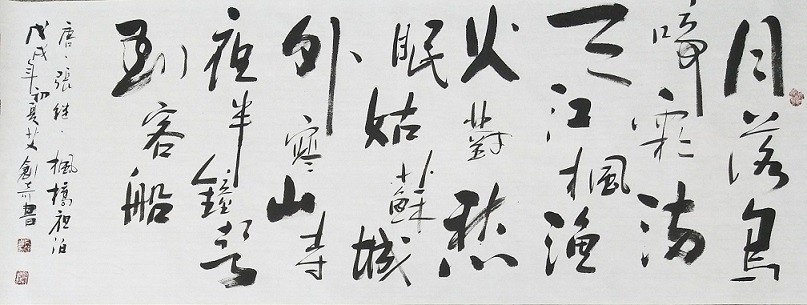 月落烏
啼霜滿
天江楓漁
火對愁
眠姑蘇城
外寒山寺
夜半鐘聲
到客船
唐·張繼·楓橋夜泊
戊戌年初夏艾創書